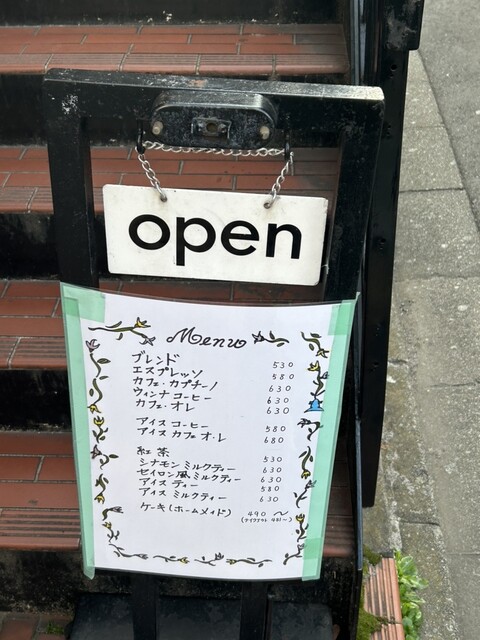 open
Menu
ブレンド 530
エスプレッソ 580
カフェ・カプチーノ 630
ウィンナコーヒー 630
カフェ・オレ 630
アイスコーヒー 580
アイスカフェオ・レ 680
紅茶 530
シナモンミルクティー 630
セイロン風ミルクティー 630
アイスティー 580
アイスミルクティー 630
ケーキ(ホームメイド) 490〜
(テイクアウト 481〜)